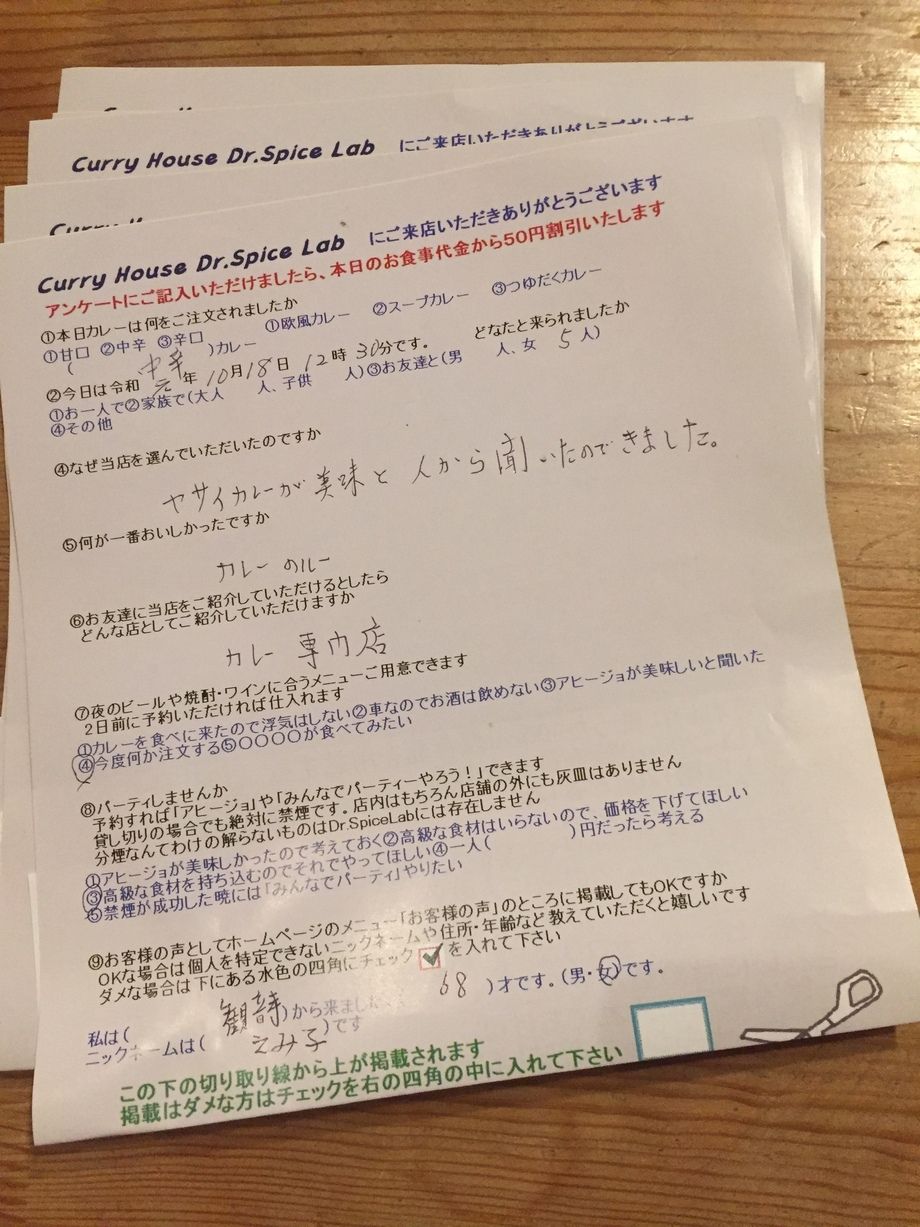 Curry House Dr.Spice Lab にご来店いただきありがとうございます
Curry House Dr.Spice Lab にご来店いただきありがとうございます
アンケートにご記入いただけましたら、本日のお食事代金から50円割引いたします
①本日カレーは何をご注文されましたか
①甘口 ②中辛 ③辛口 ①欧風カレー ②スープカレー ③つゆだくカレー
( 中辛 )カレー どなたと来られましたか
②今日は令和 元 年 10月18日 12時 30分です。
①お一人で②家族で(大人 人、子供 人)③お友達と(男 人、女 5 人)
④その他
④なぜ当店を選んでいただいたのですか
ヤサイカレーが美味と 人から聞いたのできました。
⑤何が一番おいしかったですか
カレーのルー
⑥お友達に当店をご紹介していただけるとしたら
どんな店としてご紹介していただけますか
カレー専門店
⑦夜のビールや焼酎・ワインに合うメニューご用意できます
2日前に予約いただければ仕入れます
①カレーを食べに来たので浮気はしない②車なのでお酒は飲めない③アヒージョが美味しいと聞いた
④今度何か注文する⑤○○○○が食べてみたい
⑧パーティしませんか
予約すれば「アヒージョ」や「みんなでパーティーやろう!」できます
貸し切りの場合でも絶対に禁煙です。店内はもちろん店舗の外にも灰皿はありません
分煙なんてわけの解らないものはDr.SpiceLabには存在しません
①アヒージョが美味しかったので考えておく②高級な食材はいらないので、価格を下げてほしい
③高級な食材を持ち込むのでそれでやってほしい④一人( )円だったら考える
⑤禁煙が成功した暁には「みんなでパーティ」やりたい
⑨お客様の声としてホームページのメニュー「お客様の声」のところに掲載してもOKですか
OKな場合は個人を特定できないニックネームや住所・年齢など教えていただくと嬉しいです
ダメな場合は下にある水色の四角にチェック✓を入れて下さい
私は( 観音寺 )から来ました 68 )才です。(男・女)です。
ニックネームは( えみ子 )です
この下の切り取り線から上が掲載されます
掲載はダメな方はチェックを右の四角の中に入れて下さい